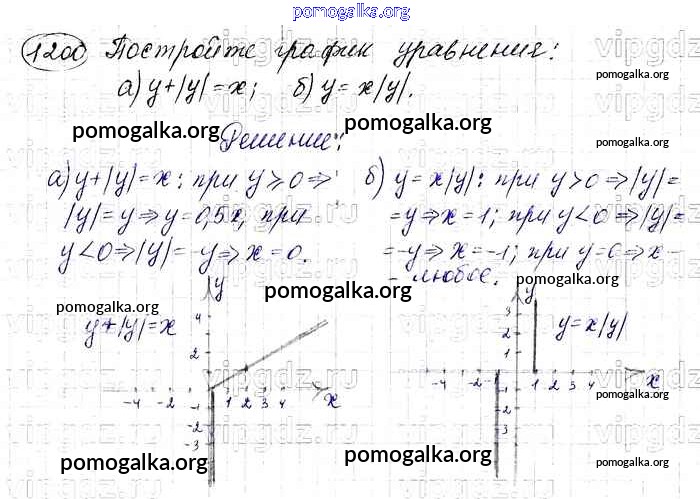 pomogalka.org
1200 Постройте график уравнения:
а) y+|y|=x; б) y=x|y|.
pomogalka.org
pomogalka.org
pomogalka.org
pomogalka.org
Решение:
а) y+|y|=x: при y⩾0⇒
|y|=y⇒y=0,5x, при
y<0⇒|y|=-y⇒x=0.
б) y=x|y|: при y>0⇒|y|=
=y⇒x=1; при y<0⇒|y|=
=-y⇒x=-1; при y=0⇒x-
- любое.
pomogalka.org
pomogalka.org
pomogalka.org
y+|y|=x
y
4
2
-4 -2 1 2 3 4 x
-2
-3
y
y=x|y|
3
2
1
-4 -2 -1 1 2 3 4 x
-1
-2
-3
pomogalka.org
pomogalka.org
pomogalka.org
pomogalka.org
pomogalka.org
vipgdz.ru